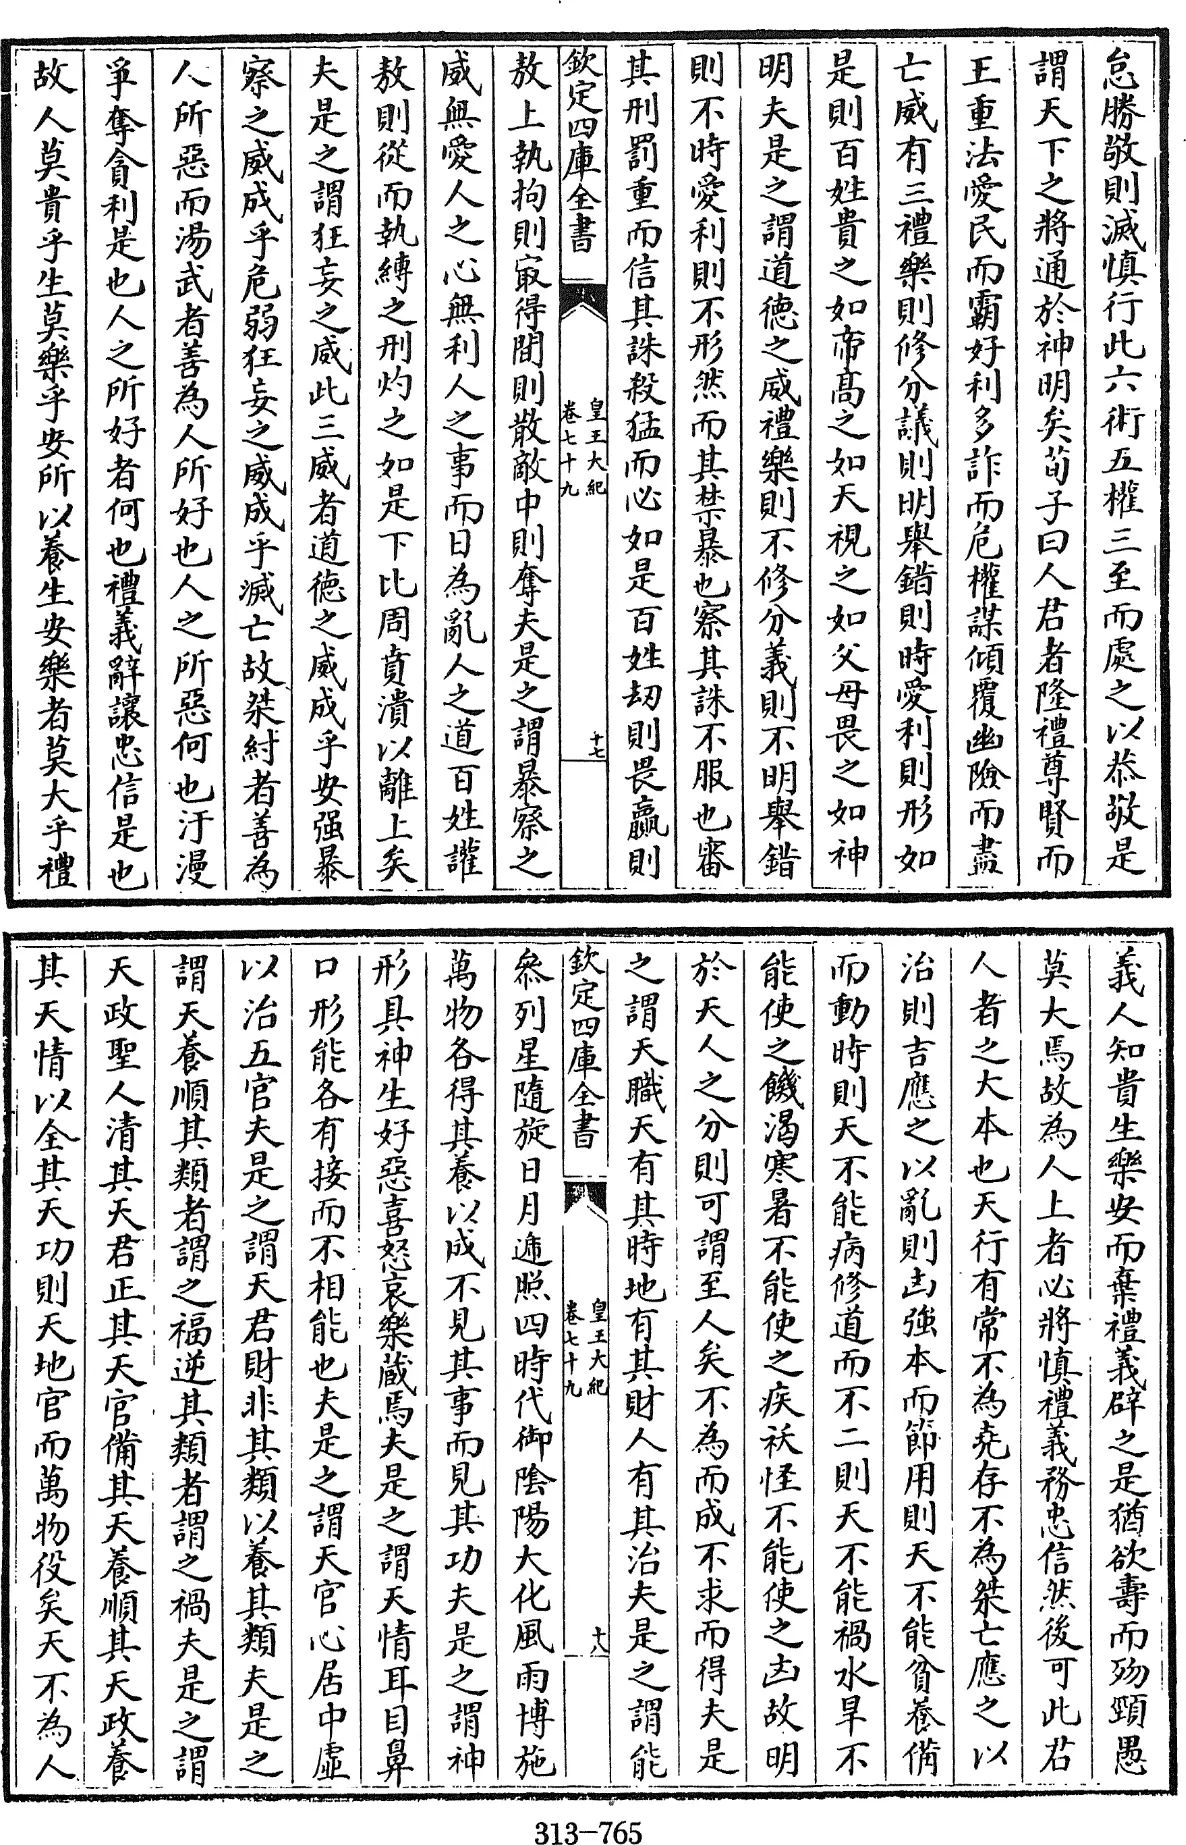 怠勝敬則滅慎行此六術五權三至而處之以恭敬是
謂天下之將通於神明矣荀子曰人君者隆禮尊賢而
王重法愛民而霸好利多詐而危權謀傾覆幽險而盡
亡威有三禮樂則修分議則明舉錯則時愛利則形如
是則百姓貴之如帝髙之如天視之如父母畏之如神
明夫是之謂道德之威禮樂則不修分義則不明舉錯
則不時愛利則不形然而其禁暴也察其誅不服也審
其刑罰重而信其誅殺猛而必如是百姓刧則畏贏則
欽定四庫全書
皇王大紀
卷七十九
十七
敖上執拘則㝡得間則散敵中則奪夫是之謂暴察之
威無愛人之心無利人之事而日為亂人之道百姓讙
敖則從而執縛之刑灼之如是下比周賁潰以離上矣
夫是之謂狂妄之威此三威者道德之威成乎安强暴
察之威成乎危弱狂妄之威成乎滅亡故桀紂者善為
人所惡而湯武者善為人所好也人之所惡何也汙漫
爭奪貪利是也人之所好者何也禮義辭讓忠信是也
故人莫貴乎生莫樂乎安所以養生安樂者莫大乎禮
義人知貴生樂安而棄禮義辟之是猶欲壽而歾頸愚
莫大焉故為人上者必將慎禮義務忠信然後可此君
人者之大本也天行有常不為堯存不為桀亡應之以
治則吉應之以亂則凶強本而節用則天不能貧養備
而動時則天不能病修道而不二則天不能禍水旱不
能使之饑渴寒暑不能使之疾祅怪不能使之凶故明
於天人之分則可謂至人矣不為而成不求而得夫是
之謂天職天有其時地有其財人有其治夫是之謂能
欽定四庫全書
皇王大紀
卷七十九
十八
叅列星隨旋日月遞照四時代御陰陽大化風雨博施
萬物各得其養以成不見其事而見其功夫是之謂神
形具神生好惡喜怒哀樂藏焉夫是之謂天情耳目鼻
口形能各有接而不相能也夫是之謂天官心居中虛
以治五官夫是之謂天君財非其類以養其類夫是之
謂天養順其類者謂之福逆其類者謂之禍夫是之謂
天政聖人清其天君正其天官備其天養順其天政養
其天情以全其天功則天地官而萬物役矣天不為人
313-765